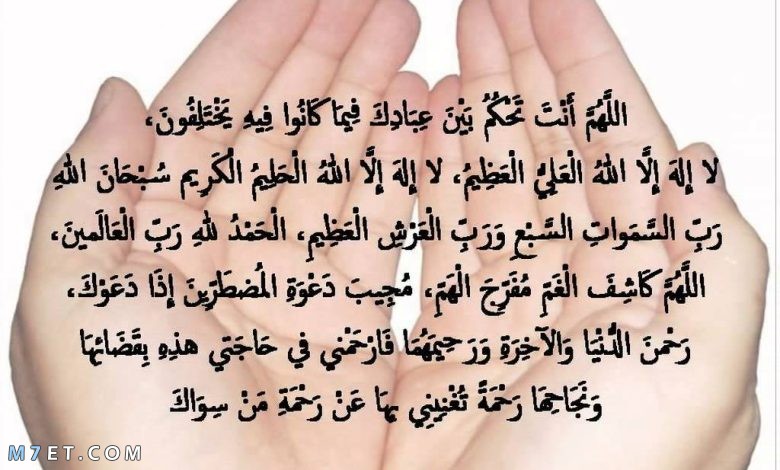 اللَّهُمَّ أَنْتَ تَحْكُمُ بَيْنَ عِبَادِكَ فِيمَا كَانُوا فِيهِ يَخْتَلِفُونَ،
لا إِلهَ إِلَّا اللهُ الْعَلِيُّ الْعَظِيمُ، لا إِلهَ إِلَّا اللهُ الْحَلِيمُ الْكَرِيم سُبْحَانَ اللهِ
رَبِّ السَّمَواتِ السَّبْعِ وَرَبِّ الْعَرْشِ الْعَظِيمِ، الْحَمْدُ للهِ رَبِّ الْعَالَمينَ،
اللَّهُمَّ كَاشِفَ الْغَمِّ مُفَرِّجَ الْهَمِّ، مُجِيبَ دَعْوَةِ المُضطَرِّينَ إِذَا دَعَوْكَ،
رَحْمنَ الدُّنْيَا وَالآخِرَةِ وَرَحِيمَهُمَا فَارْحَمْنِي فِي حَاجَتِي هذِهِ بِقَضَائِهَا
وَنَجَاحِهَا رَحْمَةً تُغْنِينِي بِهَا عَنْ رَحْمَةِ مَنْ سِوَاكَ
M7ET.COM